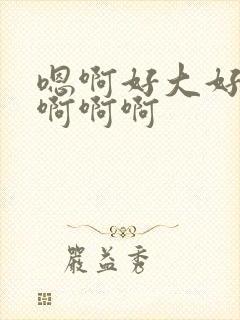 嗯啊好大好
啊啊啊
严益秀